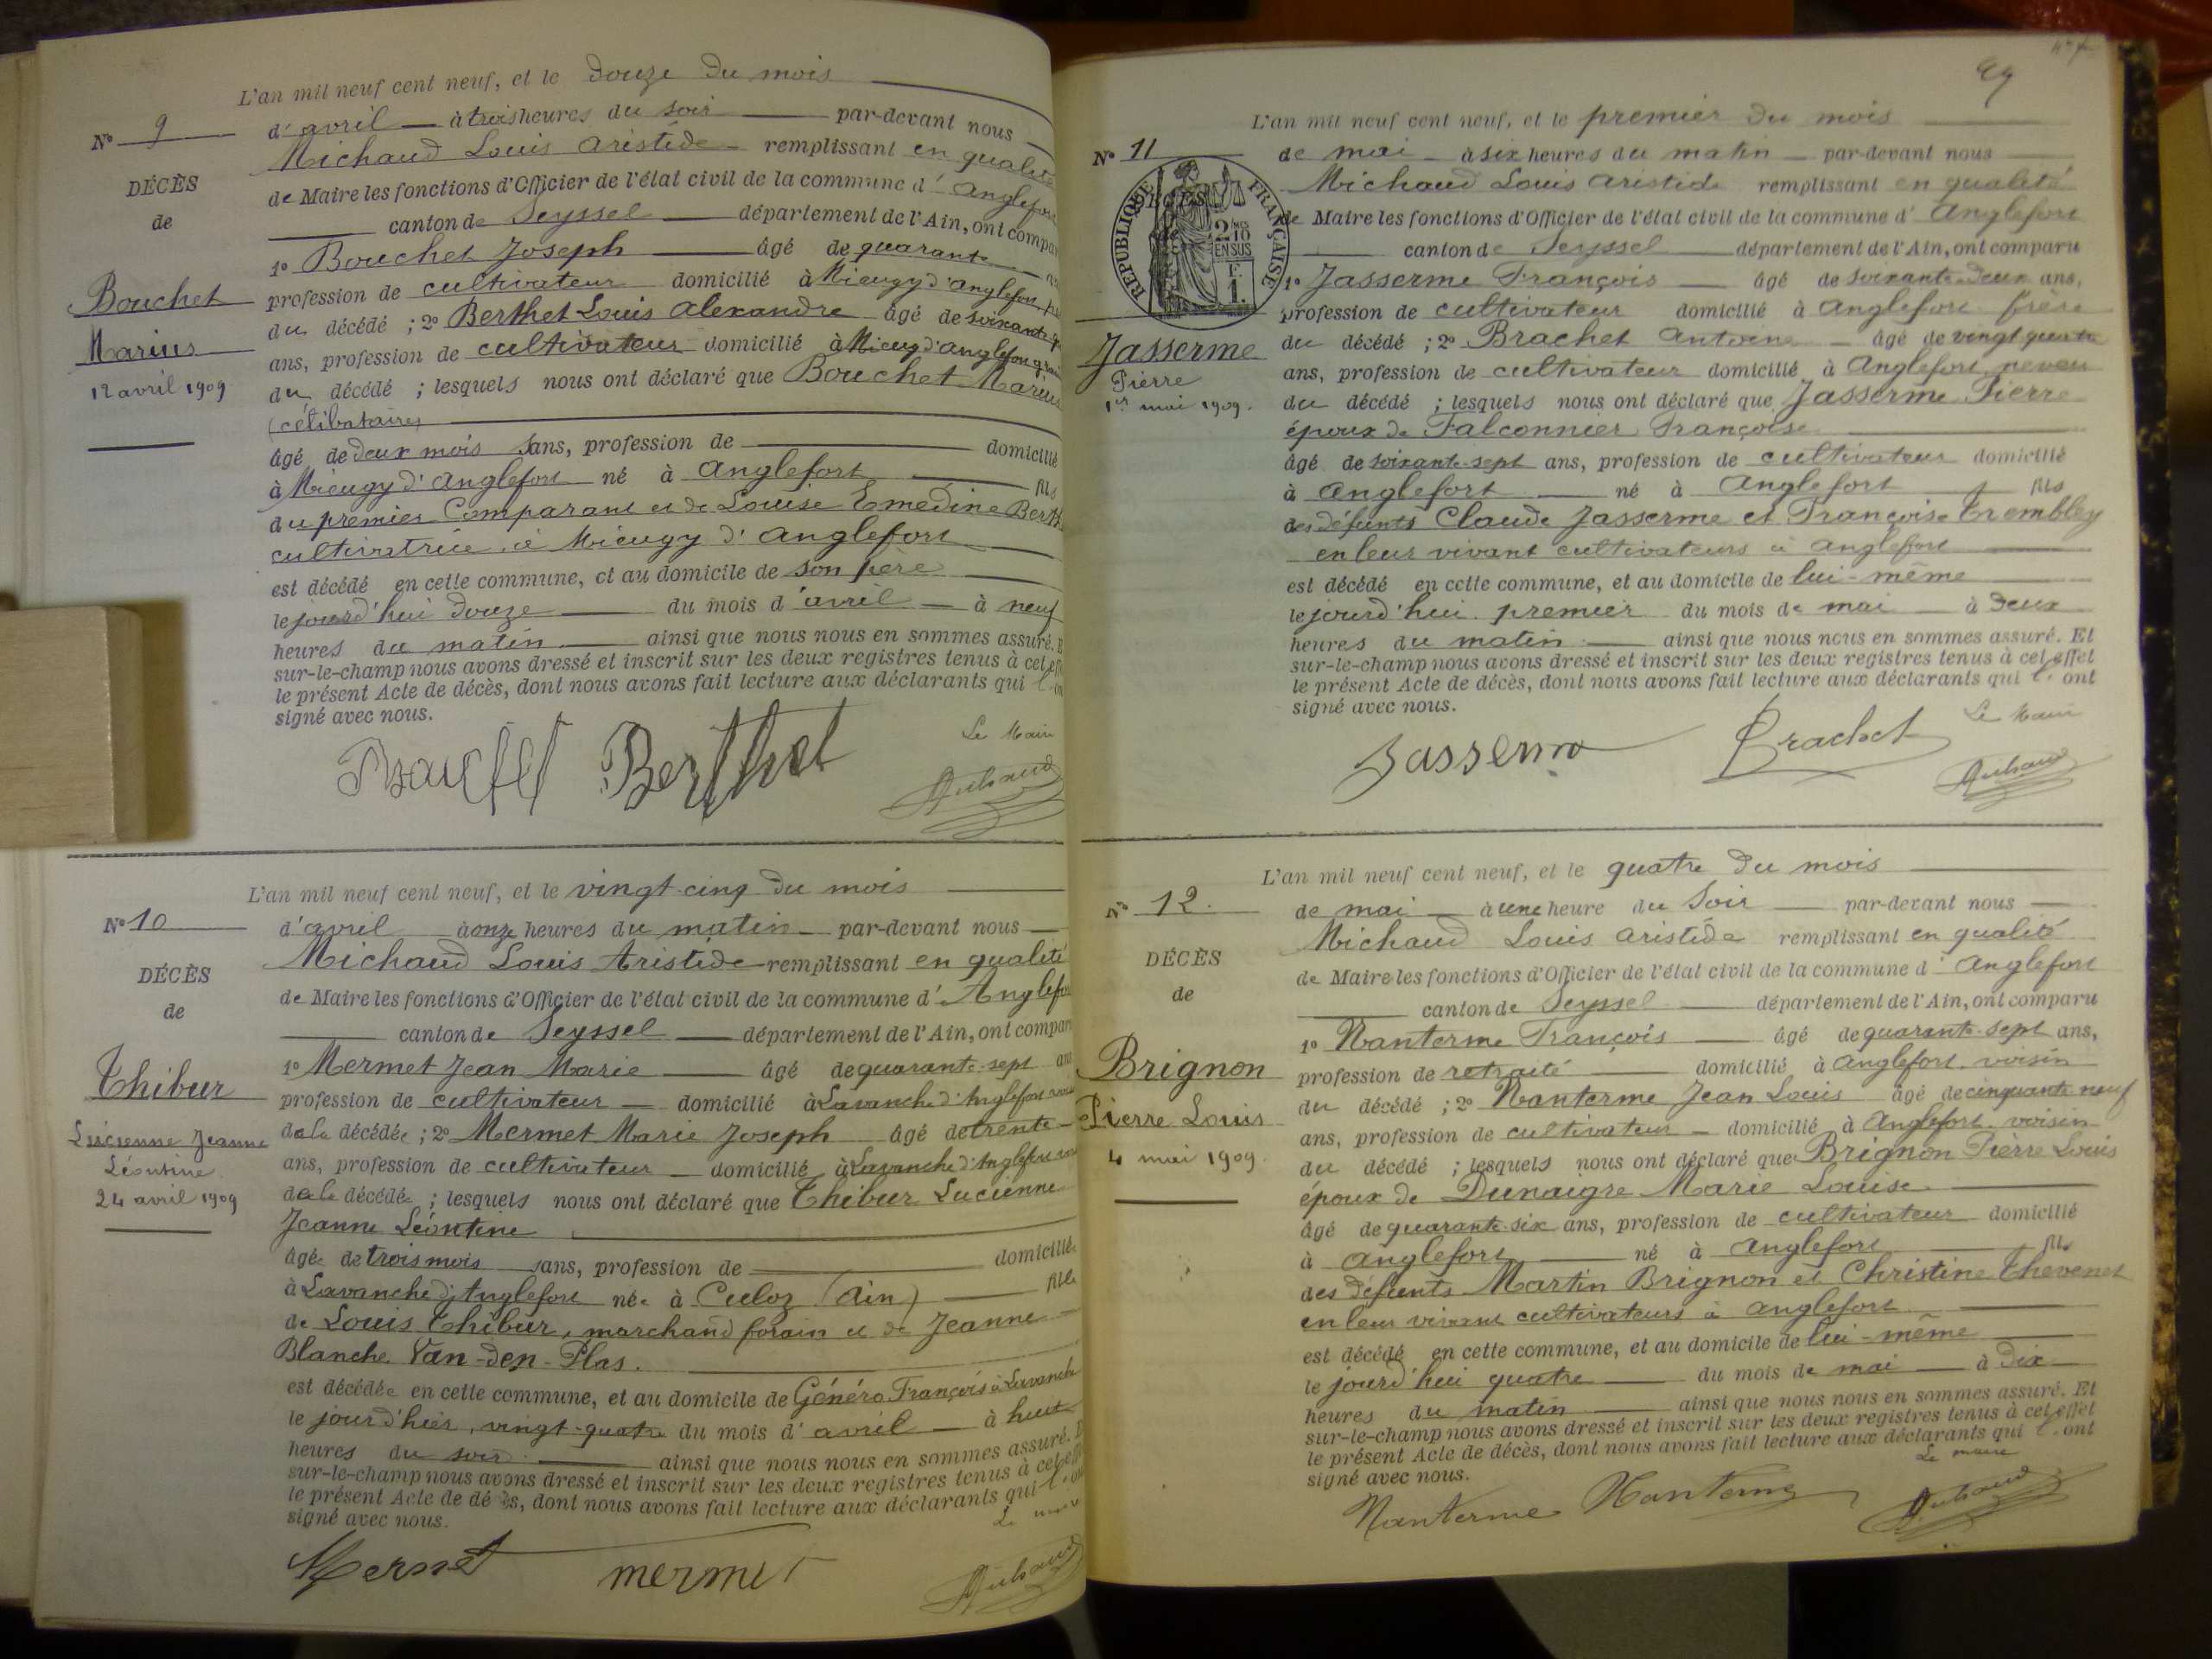 L'an mil neuf cent neuf, et le douze du mois
N° 9
d'avril à trois heures du soir par-devant nous
Michaud Louis Aristide remplissant en qualité
DÉCÈS
de Maire les fonctions d'Officier de l'état civil de la commune d'Anglefort
de
canton de Seyssel département de l'Ain, ont compar
1° Bouchet Joseph âgé de quarante
Bouchet
profession de cultivateur domicilié à Mieugy d'Anglefort
du décédé ; 2° Berthet Louis Alexandre âgé de soixante
Marius
ans, profession de cultivateur domicilié à Mieugy d'Anglefort
12 avril 1909
du décédé ; lesquels nous ont déclaré que Bouchet Marius
(célibataire)
âgé de deux mois sans, profession de domicilié
à Mieugy d'Anglefort né à Anglefort fils
du premier Comparant et de Louise Emedine Berth
cultivatrice à Mieugy d'Anglefort
est décédé en cette commune, et au domicile de son père
le jourd'hui douze du mois d'avril à neuf
heures du matin ainsi que nous nous en sommes assuré. E
sur-le-champ nous avons dressé et inscrit sur les deux registres tenus à cet eff
le présent Acte de décès, dont nous avons fait lecture aux déclarants qui l'on
signé avec nous.
Le Maire
Berthet
L'an mil neuf cent neuf, et le vingt-cinq du mois
N° 10
d'avril à onze heures du matin par-devant nous
Michaud Louis Aristide remplissant en qualité
DÉCÈS
de Maire les fonctions d'Officier de l'état civil de la commune d'Anglefo
de
canton de Seyssel département de l'Ain, ont compar
1° Mermet Jean Marie âgé de quarante-sept ans
Thibur
profession de cultivateur domicilié à Lavanche d'Anglefort
Lucienne Jeanne
de la décédée ; 2° Mermet Marie Joseph âgé de trente
Léontine
ans, profession de cultivateur domicilié à Lavanche d'Anglefort
24 avril 1909
de la décédée ; lesquels nous ont déclaré que Thibur Lucienne
Jeanne Léontine
âgée de trois mois sans, profession de domiciliée
à Lavanche d'Anglefort née à Culoz (Ain) fille
de Louis Thibur, marchand forain et de Jeanne
Blanche Van-den-Plas.
est décédée en cette commune, et au domicile de Généro François à Lavanche
le jour d'hier, vingt-quatre du mois d'avril à huit
heures du soir ainsi que nous nous en sommes assuré. E
sur-le-champ nous avons dressé et inscrit sur les deux registres tenus à cet effe
le présent Acte de décès, dont nous avons fait lecture aux déclarants qui l'on
signé avec nous.
Le maire
Mermet mermet
99
L'an mil neuf cent neuf, et le premier du mois
N° 11
de mai à six heures du matin par-devant nous
Michaud Louis Aristide remplissant en qualité
RÉPUBLIQUE FRANÇAISE
2/10 EN SUS
F. 1.
de Maire les fonctions d'Officier de l'état civil de la commune d'Anglefort
canton de Seyssel département de l'Ain, ont comparu
1° Jasserme François âgé de soixante-deux ans,
profession de cultivateur domicilié à Anglefort frère
Jasserme
du décédé ; 2° Brachet Antoine âgé de vingt quatre
Pierre
ans, profession de cultivateur domicilié à Anglefort, neveu
1er mai 1909.
du décédé ; lesquels nous ont déclaré que Jasserme Pierre
époux de Falconnier Françoise
âgé de soixante-sept ans, profession de cultivateur domicilié
à Anglefort né à Anglefort fils
des défunts Claude Jasserme et Françoise Trembley
en leur vivant cultivateurs à Anglefort
est décédé en cette commune, et au domicile de lui-même
le jourd'hui premier du mois de mai à deux
heures du matin ainsi que nous nous en sommes assuré. Et
sur-le-champ nous avons dressé et inscrit sur les deux registres tenus à cet effet
le présent Acte de décès, dont nous avons fait lecture aux déclarants qui l'ont
signé avec nous.
Le Maire
Jasserme Brachet
L'an mil neuf cent neuf, et le quatre du mois
N° 12.
de mai à une heure du soir par-devant nous
Michaud Louis Aristide remplissant en qualité
DÉCÈS
de Maire les fonctions d'Officier de l'état civil de la commune d'Anglefort
de
canton de Seyssel département de l'Ain, ont comparu
1° Nanterme François âgé de quarante-sept ans,
Brignon
profession de retraité domicilié à Anglefort, voisin
Pierre Louis
du décédé ; 2° Nanterme Jean Louis âgé de cinquante neuf
ans, profession de cultivateur domicilié à Anglefort, voisin
4 mai 1909.
du décédé ; lesquels nous ont déclaré que Brignon Pierre Louis
époux de Dunaigre Marie Louise
âgé de quarante-six ans, profession de cultivateur domicilié
à Anglefort né à Anglefort fils
des défunts Martin Brignon et Christine Thevenet
en leur vivant cultivateurs à Anglefort
est décédé en cette commune, et au domicile de lui-même
le jourd'hui quatre du mois de mai à dix
heures du matin ainsi que nous nous en sommes assuré. Et
sur-le-champ nous avons dressé et inscrit sur les deux registres tenus à cet effet
le présent Acte de décès, dont nous avons fait lecture aux déclarants qui l'ont
signé avec nous.
Le maire
Nanterme Nanterme